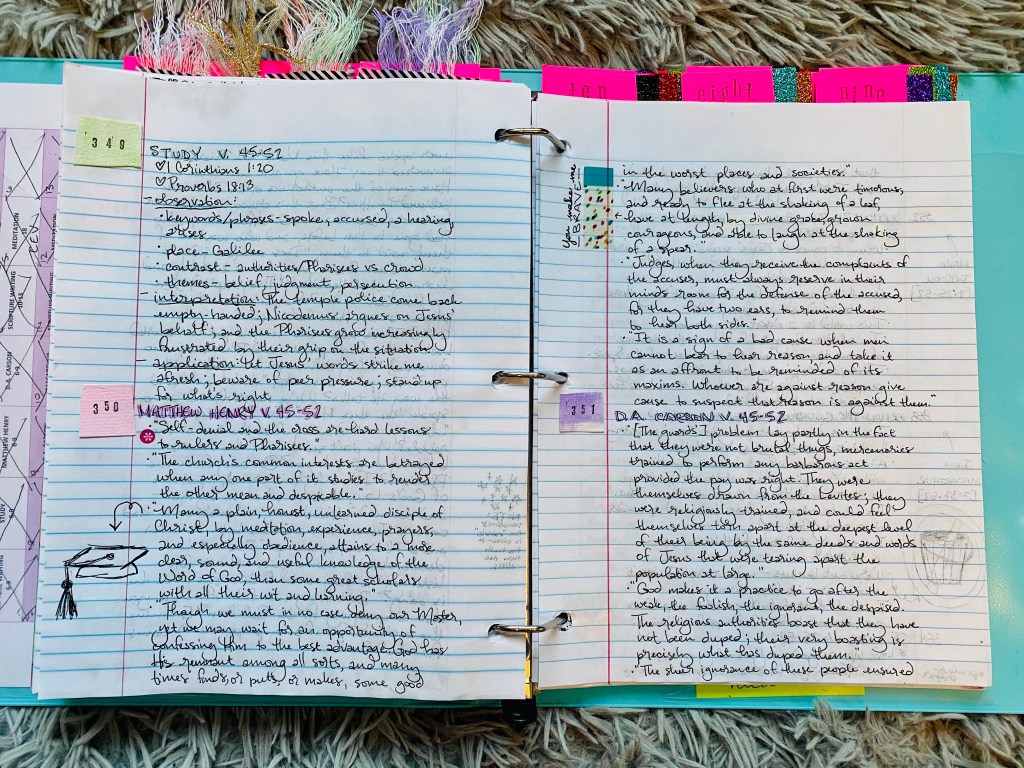 ten
eight
nine
349
STUDY V. 45-52
♡1 Corinthians 1:20
♡Proverbs 18:13
- observation:
• keywords/phrases - spoke, accused, a hearing,
arises
• place - Galilee
• contrast - authorities/Pharisees vs crowd
• themes - belief, judgment, persecution
- interpretation: The temple police come back
empty-handed; Nicodemus argues on Jesus'
behalf; and the Pharisees grow increasingly
frustrated by their grip on the situation.
- application: Let Jesus' words strike me
afresh; beware of peer pressure; stand up
for what's right
350
MATTHEW HENRY V. 45-52
• "Self-denial and the cross are hard lessons
to rulers and Pharisees."
• "The church's common interests are betrayed
when any one part of it studies to render
the other mean and despicable."
• "Many a plain, honest, unlearned disciple of
Christ, by meditation, experience, prayers,
and especially obedience, attains to a more
clear, sound, and useful knowledge of the
Word of God, than some great scholars
with all their wit and learning."
• "Though we must in no case deny our Master,
yet we may wait for an opportunity of
confessing Him to the best advantage. God has
His remnant among all sorts, and many
times finds, or puts, or makes, some good
in the worst places and societies."
You make me
BRAVE
• "Many believers who at first were timorous,
and ready to flee at the shaking of a leaf,
have at length, by divine grace, grown
courageous, and able to laugh at the shaking
of a spear."
• "Judges, when they receive the complaints of
the accuser, must always reserve in their
minds room for the defense of the accused,
for they have two ears, to remind them
to hear both sides."
• "It is a sign of a bad cause when men
cannot bear to hear reason, and take it
as an affront to be reminded of its
maxims. Whoever are against reason give
cause to suspect that reason is against them."
351
D.A. CARSON V. 45-52
• "[The guards'] problem lay partly in the fact
that they were not brutal thugs, mercenaries
trained to perform any barbarous act
provided the pay was right. They were
themselves drawn from the Levites; they
were religiously trained, and could feel
themselves torn apart at the deepest level
of their being by the same deeds and words
of Jesus that were tearing apart the
population at large."
• "God makes it a practice to go after the
weak, the foolish, the ignorant, the despised.
The religious authorities boast that they have
not been duped; their very boasting is
precisely what has duped them."
• "The sheer ignorance of these people ensured
MEDITATION
SCRIPTURE WRITING
D.A. CARSON
MATTHEW HENRY
STUDY